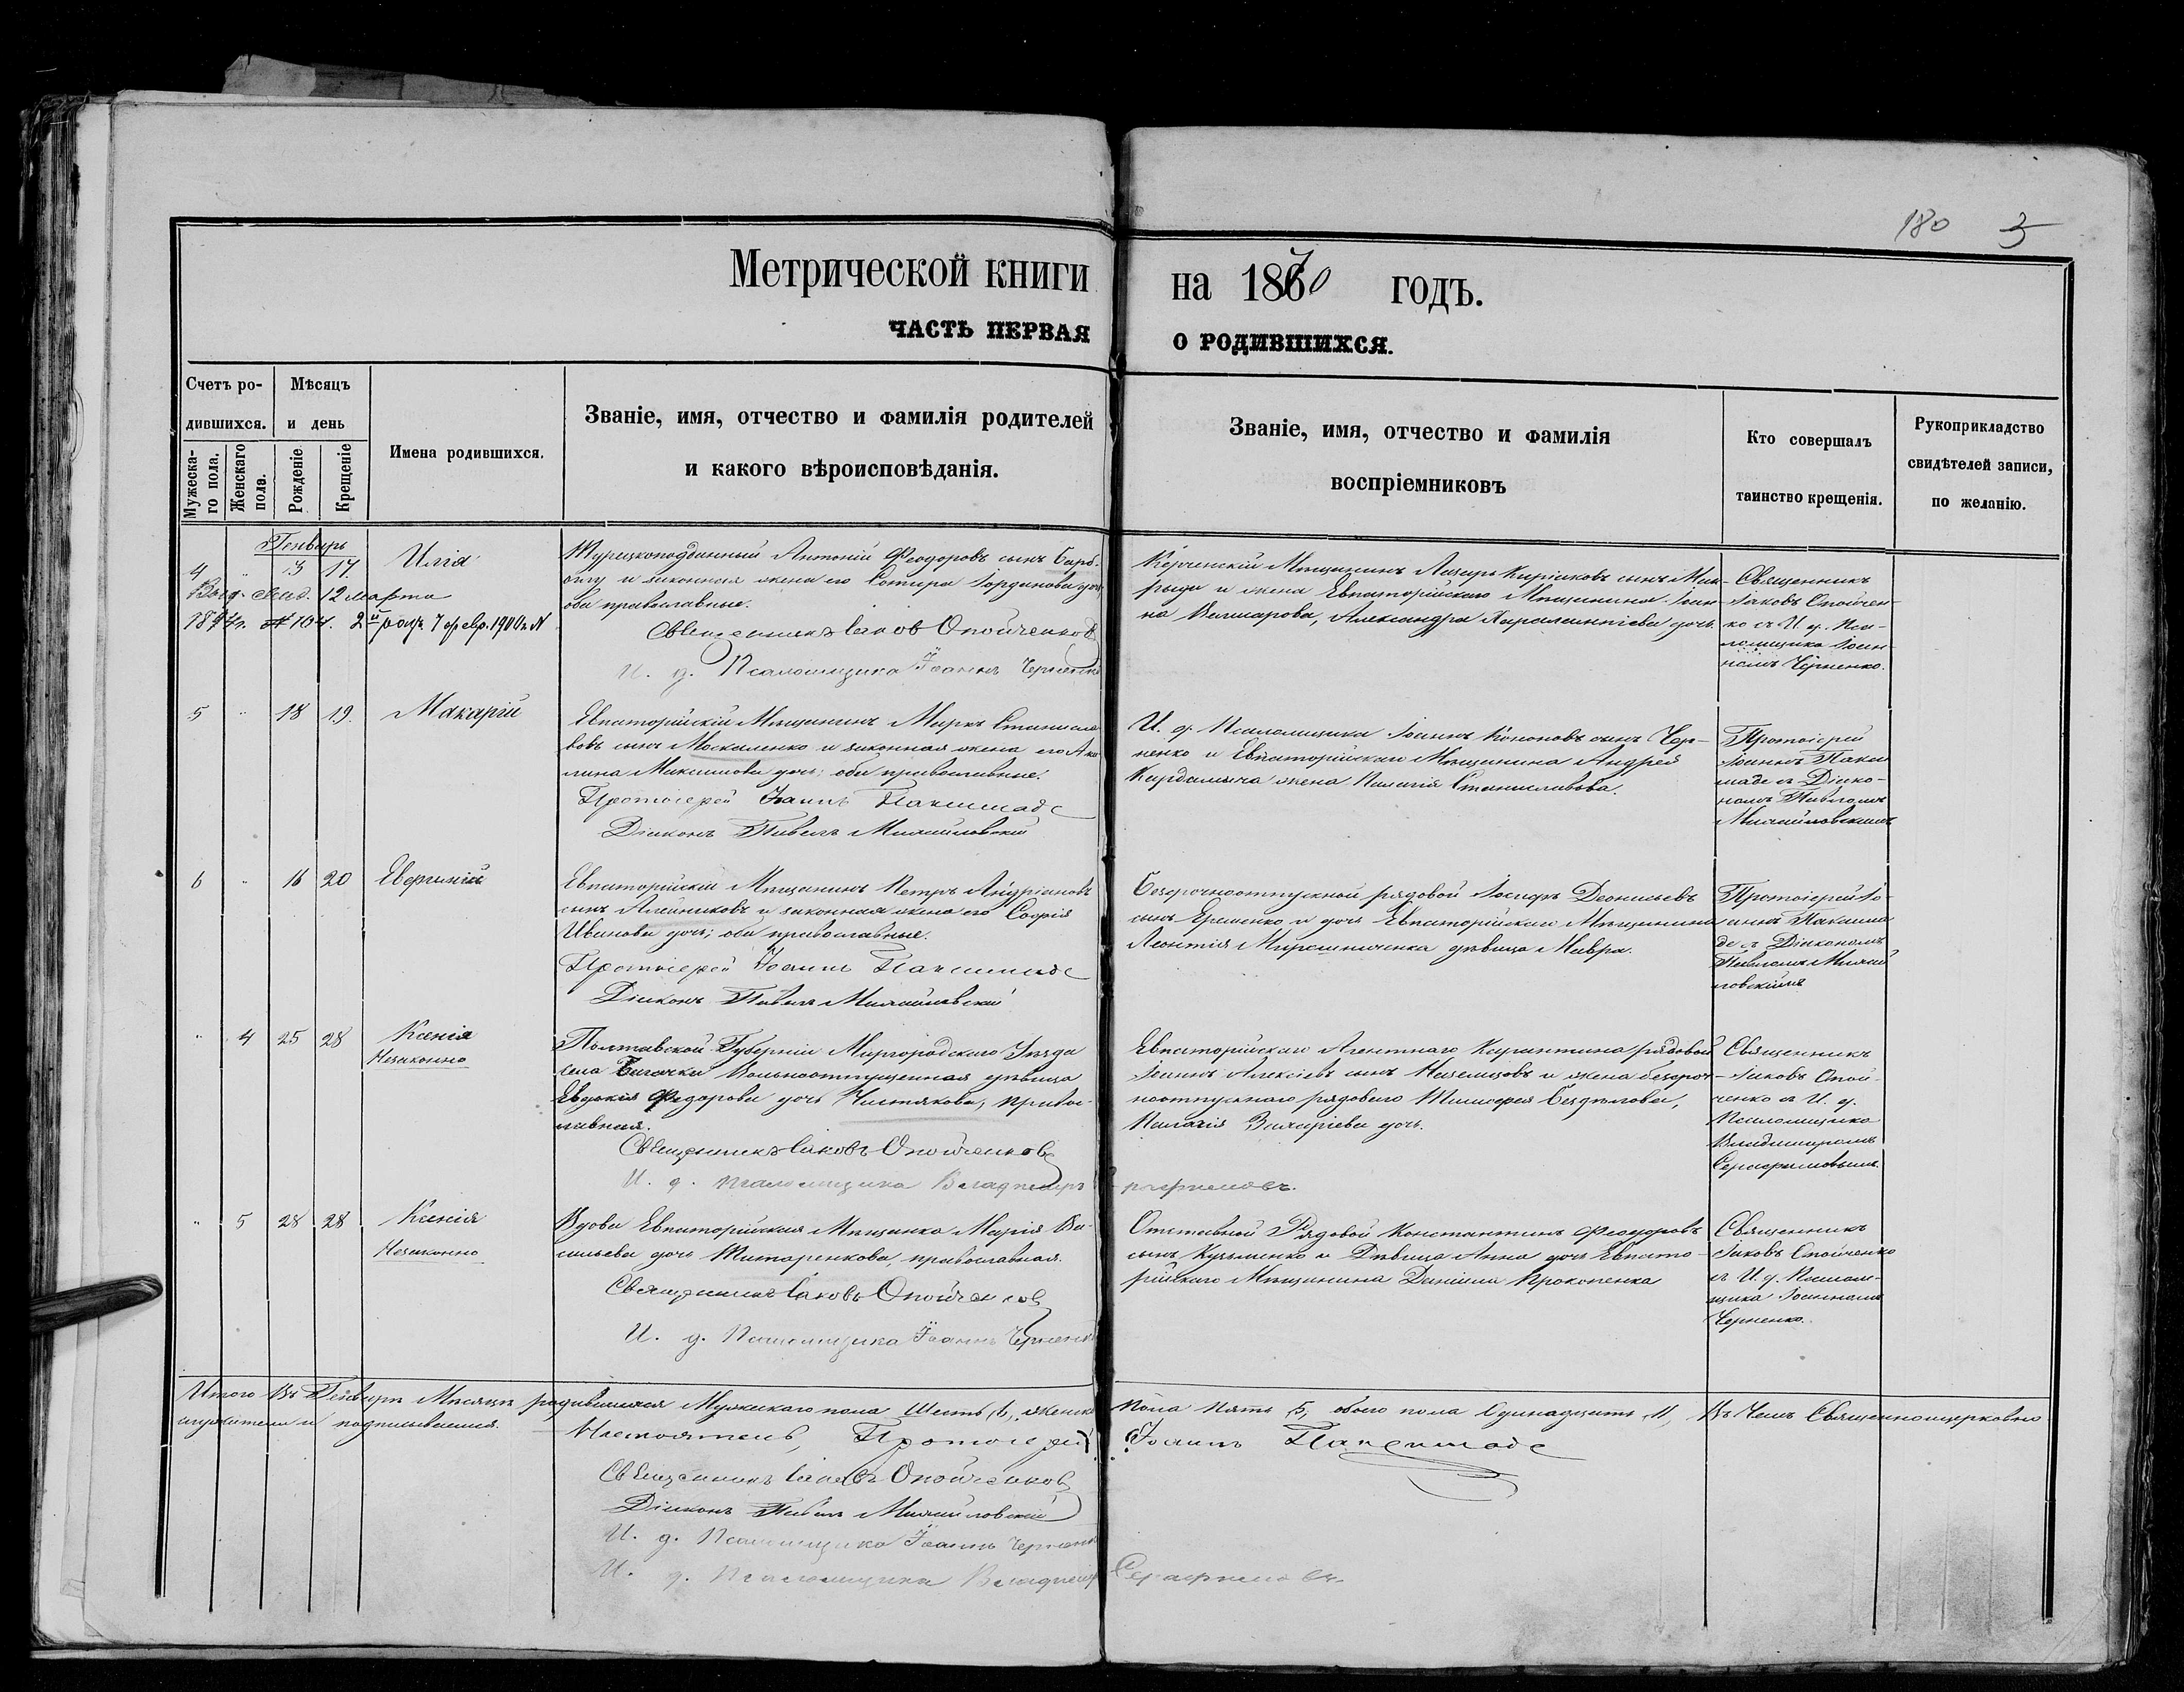 180 5
Метрической книги на 1870 годъ.
ЧАСТЬ ПЕРВАЯ О РОДИВШИХСЯ.
Счетъ ро-
дившихся.
Мѣсяцъ
и день
Мужеска-
го пола.
Женскаго
пола.
Рожденіе.
Крещеніе
Имена родившихся.
Званіе, имя, отчество и фамилія родителей
и какого вѣроисповѣданія.
Званіе, имя, отчество и фамилія
воспріемниковъ
Кто совершалъ
таинство крещенія.
Рукоприкладство
свидѣтелей записи,
по желанію.
Генварь
4 " 13 17. Илія
Выд. свид. 12 марта
1897г. № 104. 2й разъ 7 февр. 1900г. №
Турецкоподданный Антоній Феодоровъ сынъ
и законная жена его Сотира Іорданова дочь,
оба православные.
Священникъ Іаковъ Опойченковъ
И. д. Псаломщика Іоаннъ Черненко
Керченскій Мѣщанинъ Лазарь Киріаковъ сынъ
и жена Евпаторійскаго Мѣщанина Іоан-
на Александра Харалампіева дочь
Священникъ
Іаковъ Опойчен-
ко съ И. д. Пса-
ломщика Іоан-
номъ Черненко.
5 " 18 19. Макарій
Евпаторійскій Мѣщанинъ Маркъ Станисла-
вовъ сынъ Москаленко и законная жена его Аку-
лина Максимова дочь; оба православные.
Протоіерей Іоаннъ Пакшмаде
Діаконъ Павелъ Михайловскій
И. д. Псаломщика Іоаннъ Кононовъ сынъ Чер-
ненко и Евпаторійскаго Мѣщанина Андрея
Кардамыча жена Пелагія Станиславова.
Протоіерей
Іоаннъ Пакш-
маде съ Діако-
номъ Павломъ
Михайловскимъ
6 " 16 20 Евѳимій
Евпаторійскій Мѣщанинъ Петръ Андріановъ
сынъ Алейниковъ и законная жена его Софія
Иванова дочь; оба православные.
Протоіерей Іоаннъ Пакшмаде
Діаконъ Павелъ Михайловскій
Безсрочноотпускной рядовой Іосифъ Деонисьевъ
сынъ Еременко и дочь Евпаторійскаго Мѣщанина
Леонтія Мирошниченка дѣвица Мавра.
Протоіерей Іо-
аннъ Пакшма-
де съ Діакономъ
Павломъ Михай-
ловскимъ
" 4 25 28 Ксенія
Незаконно
Полтавской Губерніи Миргородскаго Уѣзда
села Багачки Вольноотпущенная дѣвица
Евдокія Федорова дочь Чистякова, правос-
лавная.
Священникъ Іаковъ Опойченковъ
И. д. псаломщика Владиміръ Серафимовъ.
Евпаторійскаго Агентнаго Карантина рядовой
Іоаннъ Алексіевъ сынъ и жена безсроч-
ноотпускнаго рядоваго Тимоѳея Бездѣлова,
Пелагія Захаріева дочь.
Священникъ
Іаковъ Опой-
ченко съ И. д.
Псаломщика
Владиміромъ
Серафимовымъ.
" 5 28 28 Ксенія
Незаконно
Вдова Евпаторійская Мѣщанка Марія Ва-
сильева дочь Титаренкова, православная.
Священникъ Іаковъ Опойченковъ
И. д. Псаломщика Іоаннъ Черненко
Отставной Рядовой Константинъ Феодоровъ
сынъ Кузьменко и Дѣвица Анна дочь Евпато-
рійскаго Мѣщанина Даніила Прокопенка
Священникъ
Іаковъ Опойченко
съ И. д. Псалом-
щика Іоанномъ
Черненко.
Итого Въ Генварѣ Мѣсяцѣ родившихся Мужскаго пола Шесть, 6, женска пола Пять, 5, обоего пола Одинадцать, 11, Въ чемъ Священноцерковно
служители и подписываемся.
Настоятель, Протоіерей Іоаннъ Пакшмаде
Священникъ Іаковъ Опойченковъ
Діаконъ Павелъ Михайловскій
И. д. Псаломщика Іоаннъ Черненко
И. д. Псаломщика Владиміръ Серафимовъ